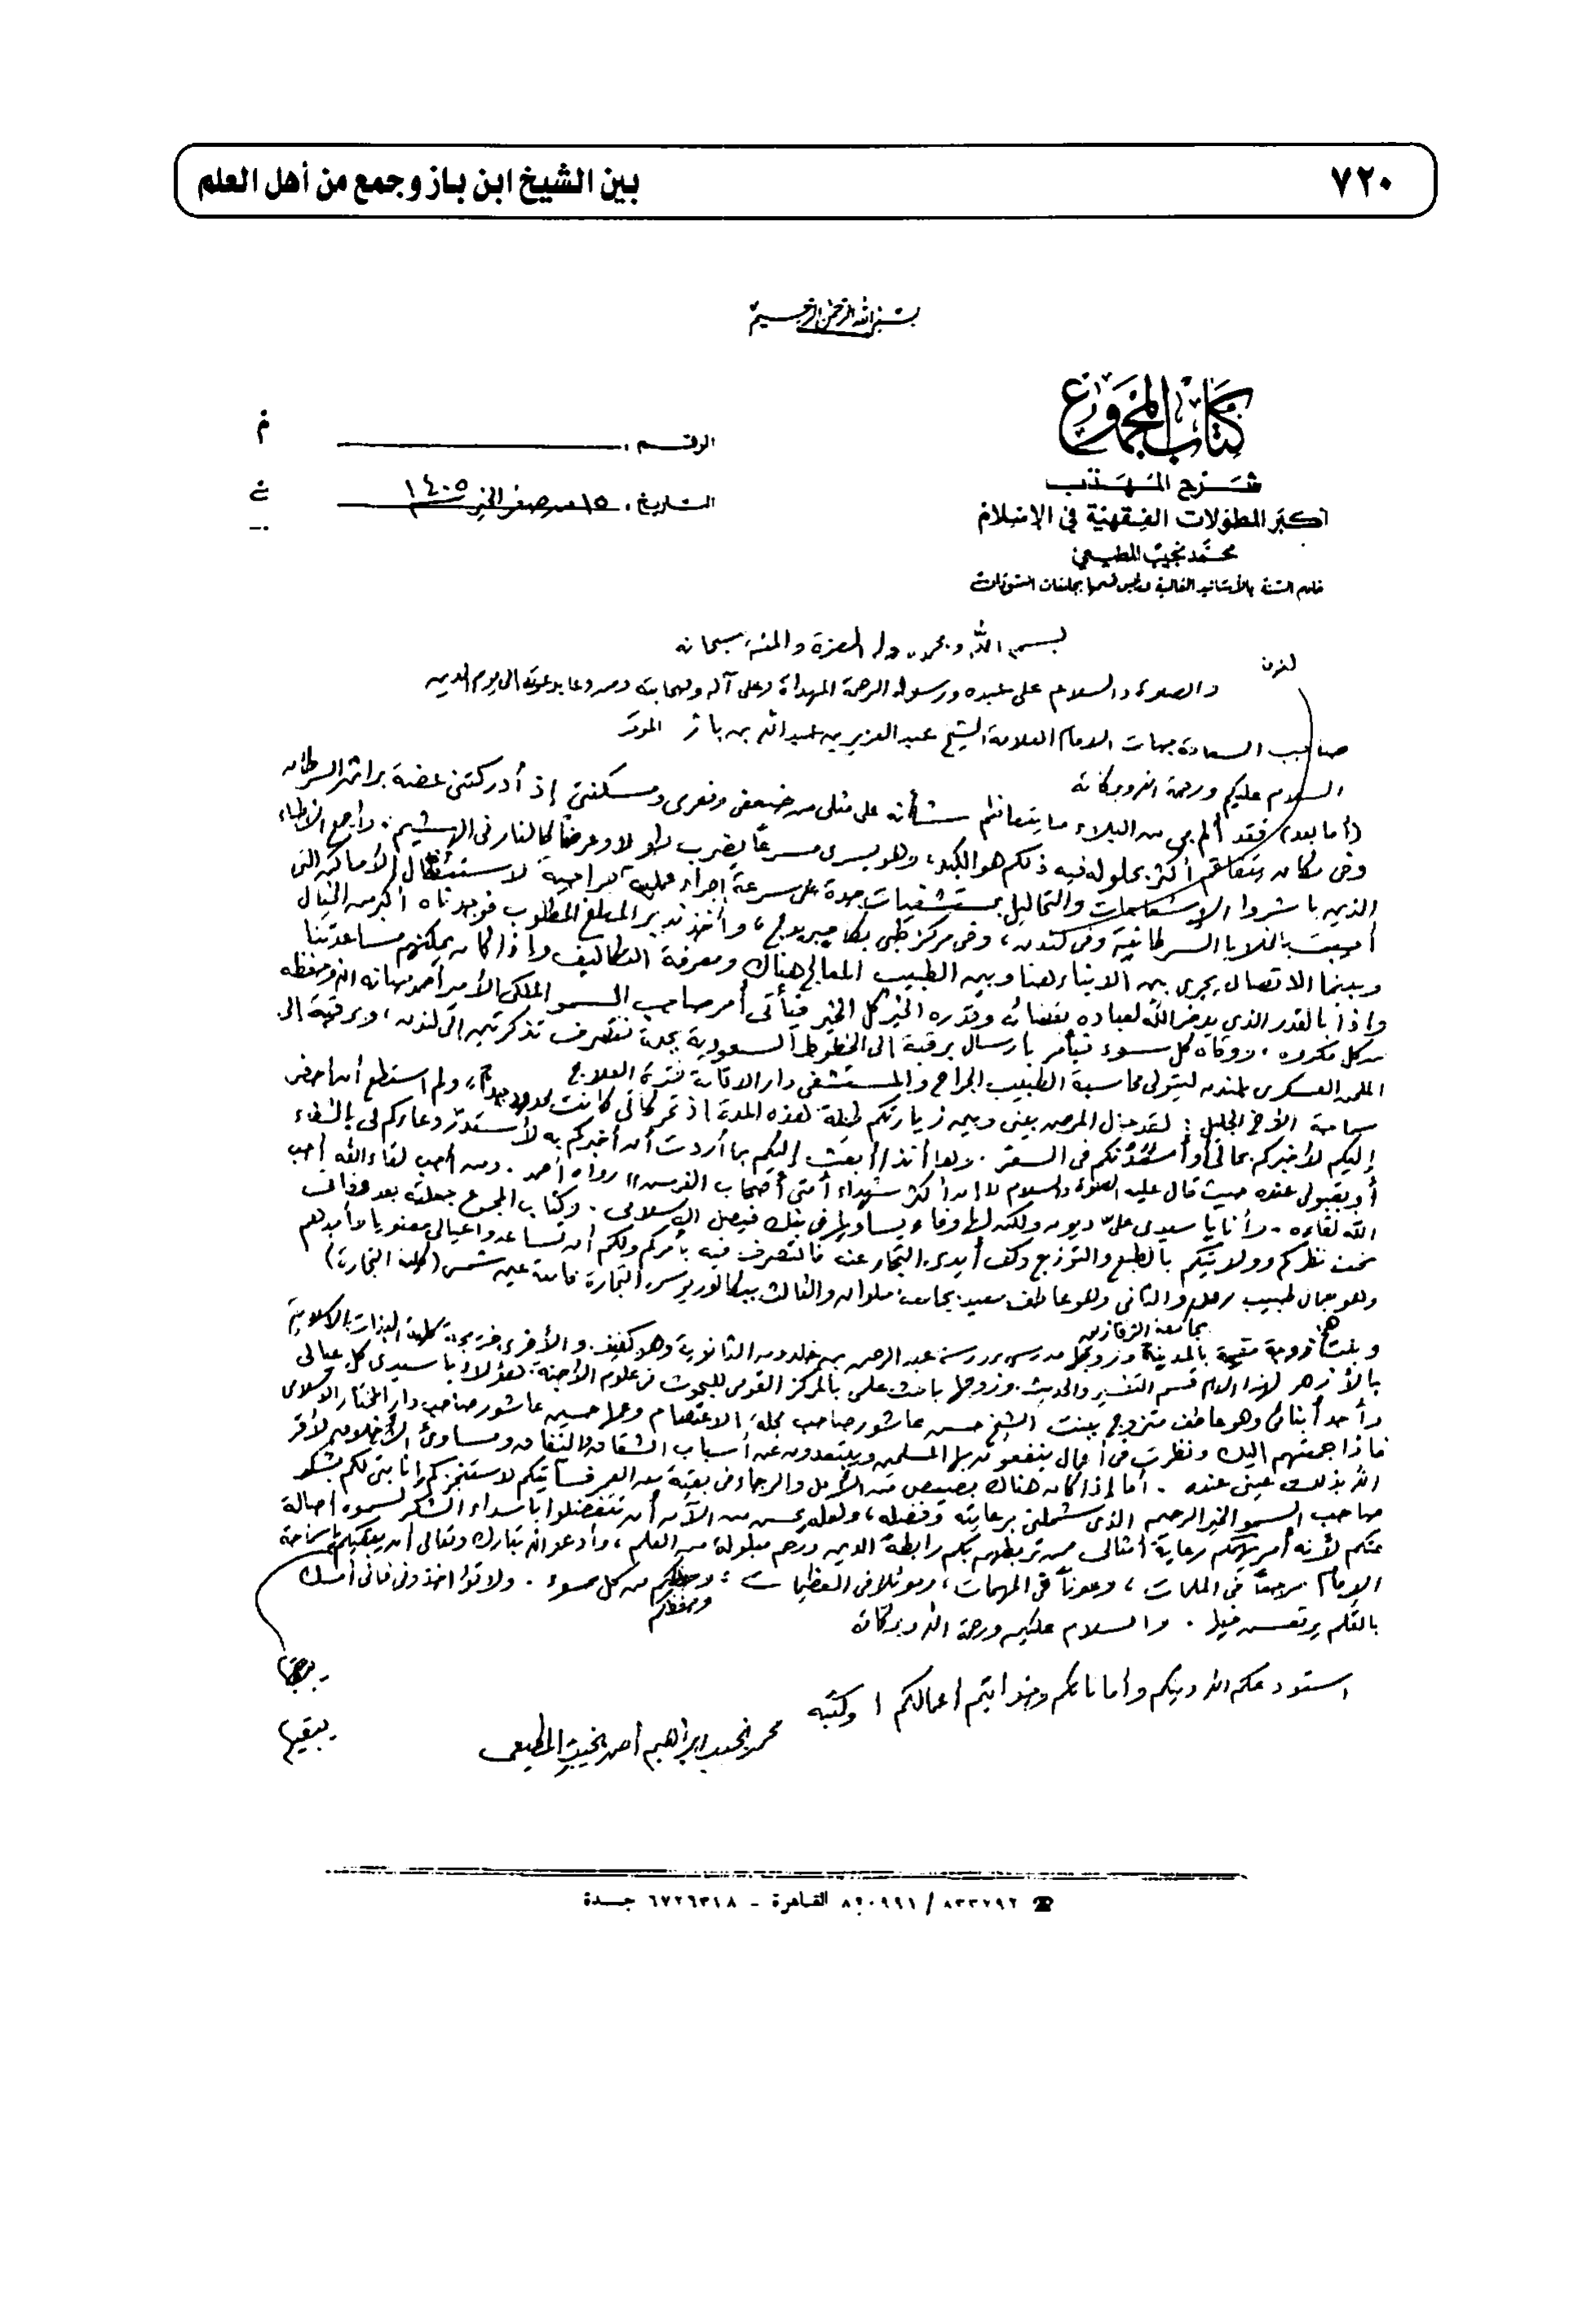 ٧٢٠
بين الشيخ ابن باز وجمع من أهل العلم
بسم الله الرحمن الرحيم
كتاب المجموع
شرح المهذب
أكبر المطولات الفقهية في الإسلام
محمد نجيب المطيعي
خادم السنة بالأسانيد العالية
الرقم :
التاريخ : ١٥ من صفر الخير ١٤٠٥
لندن
بسم الله وبحمده وله العزة والمنة سبحانه
والصلاة والسلام على عبده ورسوله الرحمة المهداة وعلى آله وصحابته ومن دعا بدعوته إلى يوم الدين
صاحب السماحة الامام العلامة الشيخ عبد العزيز بن عبد الله بن باز الموقر
السلام عليكم ورحمة الله وبركاته
(أما بعد) فقد ألم بي من البلاء ما يتعاظم شأنه على مثلي من ضعفي وفقري ومسكنتي إذ أدركتني عضة براثن السرطان
وفي مكان يتعاظم أكثر بحلوله فيه ذلكم هو الكبد، وهو يسرى مسرعاً يضرب طولا وعرضاً كالنار في الهشيم. وأجمع الأطباء
الذين باشروا الإشعاعات والتحاليل بمستشفيات جدة على سرعة إجراء عملية جراحية لاستئصال الأماكن التي
أصيبت بالخلايا السرطانية وفي لندن، وفي مركز طبي بكامبريدج، وأخذ تدبير المبلغ المطلوب فوجدناه أكبر من الخيال
وبينما الاتصال يجري بين الابناء هنا وبين الطبيب المعالج هناك ومعرفة التكاليف وإذا كان يمكنهم مساعدتنا
وإذا بالقدر الذي يدخره الله لعباده بقضائه وقدره الخير كل الخير فيأتي أمر صاحب السمو الملكي الأمير أحمد صانه الله وحفظه
من كل مكروه، ووقاه كل سوء فيأمر بارسال برقية الى الخطوط السعودية بجدة لتصرف تذكرتين إلى لندن، وبرقية الى
الملحق العسكري بلندن ليتولى محاسبة الطبيب الجراح والمستشفى دار الاقامة فترة العلاج
سماحة الأخ الجليل : لقد حال المرض بيني وبين زيارتكم طيلة هذه المدة إذ تحركاتي كانت محدودة جداً، ولم استطع أن احضر
إليكم لأخبركم بحالي وأستأذنكم في السفر. وها أنذا أبعث إليكم بما أردت أن أخبركم به لأستدر دعاءكم لي بالشفاء
أو بقبولي عنده حيث قال عليه الصلاة والسلام «ان أكثر شهداء أمتي أصحاب الفرش» رواه أحمد. ومن أحب لقاء الله أحب
الله لقاءه. وأنا يا سيدي عليّ ديون ولكن لها وفاء يساويها في بنك فيصل الاسلامي. وكتاب المجموع جعلته بعد وفاتي
تحت نظركم وولايتكم بالطبع والتوزيع وكف أيدي التجار عنه فالتصرف فيه بأمركم ولكم أن تساعدوا عيالي معنويا وأحدهم
وهو جمال طبيب والثاني وهو عاطف معيد بجامعة حلوان والثالث ببكالوريوس التجارة جامعة عين شمس (كلية التجارة)
بجامعة الزقازيق
وبنت متزوجة مقيمة بالمدينة وزوجها مدرس بمدرسة عبد الرحمن بن خلدون الثانوية وهو كفيف. والأخرى خريجة كلية البنات الاسلامية
بالأزهر لهذا العام قسم التفسير والحديث. وزوجها باحث علمي بالمركز القومي للبحوث في علوم الأجنة. هؤلاء يا سيدي كل عيالي
وأحد أبنائي وهو عاطف متزوج ببنت الشيخ حسن عاشور صاحب مجلة الاعتصام وعمها حسين عاشور صاحب دار المختار الاسلامي
فإذا جمعتهم اليك ونظرت في أعمال ينفعون بها المسلمين ويبتعدون عن أسباب الشقاق والنفاق ومساوئ الأخلاق لأقر
الله بذلك عيني عنده. أما إذا كان هناك بصيص من الأمل والرجاء في بقية من العمر فسآتيكم
صاحب السمو الخير الرحيم الذي شملني برعايته وفضله، ولعله يحسن من الآن أن تتفضلوا باسداء الشكر لسموه أصالة
عنكم لأنه رعاية أمثالي ممن تربطهم بكم رابطة الدين ورحم مبلولة من العلم، وأدعو الله تبارك وتعالى أن يبقيكم يا سماحة
الإمام مرجعاً في الملمات، وعوناً في المهمات، وموئلا في العظيمات، وحفظكم من كل سوء. ولا تؤاخذوني فاني أمسك
بالقلم يرتعش خطه. والسلام عليكم ورحمة الله وبركاته
استودعكم الله دينكم وأماناتكم وخواتيم أعمالكم / وكتبه
محمد نجيب ابراهيم أحمد بخيت المطيعي
٨٢٠٩٩١ / ٨٣٣٧٩٢ القاهرة - ٦٧٢٦٣١٨ جدة